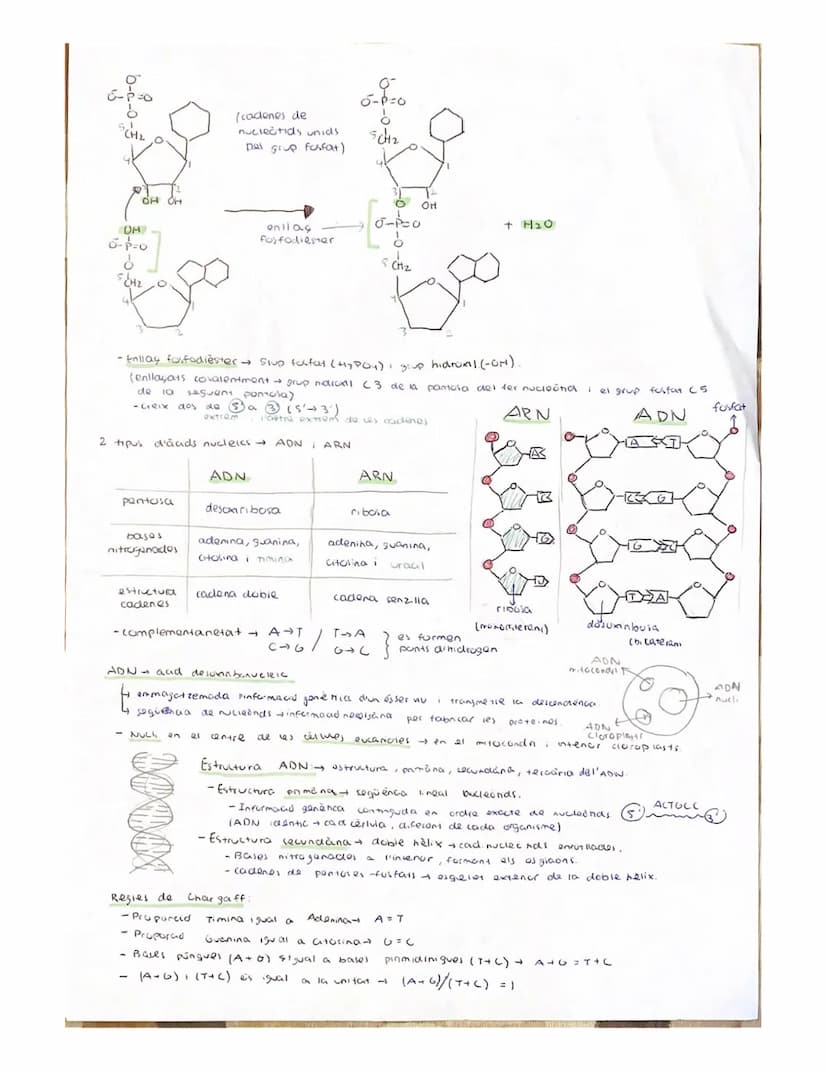 O⁻
O⁻-P=O
O
5 CH2
O
4
1
3 2
OH OH
(cadenes de
nucleòtids units
pel grup fosfat)
O⁻
O⁻-P=O
O
5 CH2
O
4
1
3 2
O OH
OH
O⁻-P=O
O
5 CH2
O
4
1
3 2
enllaç
fosfodièster
O⁻-P=O
O
5 CH2
O
4
1
3 2
+ H2O
- Enllaç fosfodièster → grup fosfat (H3PO4) i grup hidroxil (-OH).
(enllaçats covalentment → grup hidroxil C3 de la pentosa del 1er nucleòtid i el grup fosfat C5
de la següent pentosa)
- creix des de 5 a 3 (5'→3')
extrem i l'altre extrem de les cadenes
2 tipus d'àcids nucleics → ADN i ARN
ADN ARN
pentosa desoxiribosa ribosa
bases nitrogenades
adenina, guanina, citosina i timina
adenina, guanina, citosina i uracil
estructura cadenes
cadena doble cadena senzilla
ARN
A
C
G
U
ribosa
(monocateràri)
ADN
fosfat
A T
C G
G C
T A
desoxiribosa
(bicateràri
- complementarietat → A→T / T→A } es formen
C→G / G→C } ponts d'hidrogen
ADN → àcid desoxiribonucleic
↳ emmagatzemada l'informació genètica d'un ésser viu i transmetre la descendència.
↳ seqüència de nucleòtids → informació necessària per fabricar les proteïnes.
- Nucli en el centre de les cèl·lules eucariotes → en el mitocondri i interior cloroplasts.
ADN
mitocondri
ADN
nucli
ADN
cloroplasts
Estructura ADN: → estructura, primària, secundària, terciària de l'ADN.
- Estructura primària → seqüència lineal nucleòtids.
- Informació genètica continguda en ordre exacte de nucleòtids 5' ACTGCC 3'
(ADN idèntic → cada cèl·lula, diferent de cada organisme)
- Estructura secundària → doble hèlix → cad nucleòtids enrotllades.
- Bases nitrogenades a l'interior, formant els esglaons.
- cadenes de pentoses-fosfats → esquelet exterior de la doble hèlix.
Regles de Chargaff:
- Proporció Timina igual a Adenina → A = T
- Proporció Guanina igual a citosina → G = C
- Bases púriques (A+G) s'igual a bases pirimidíniques (T+C) → A+G = T+C
- (A+G) i (T+C) és igual a la unitat → (A+G)/(T+C) = 1